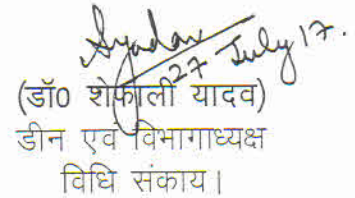 Syadav
27 July 17.
(डॉ0 शेफाली यादव)
डीन एवं विभागाध्यक्ष
विधि संकाय।